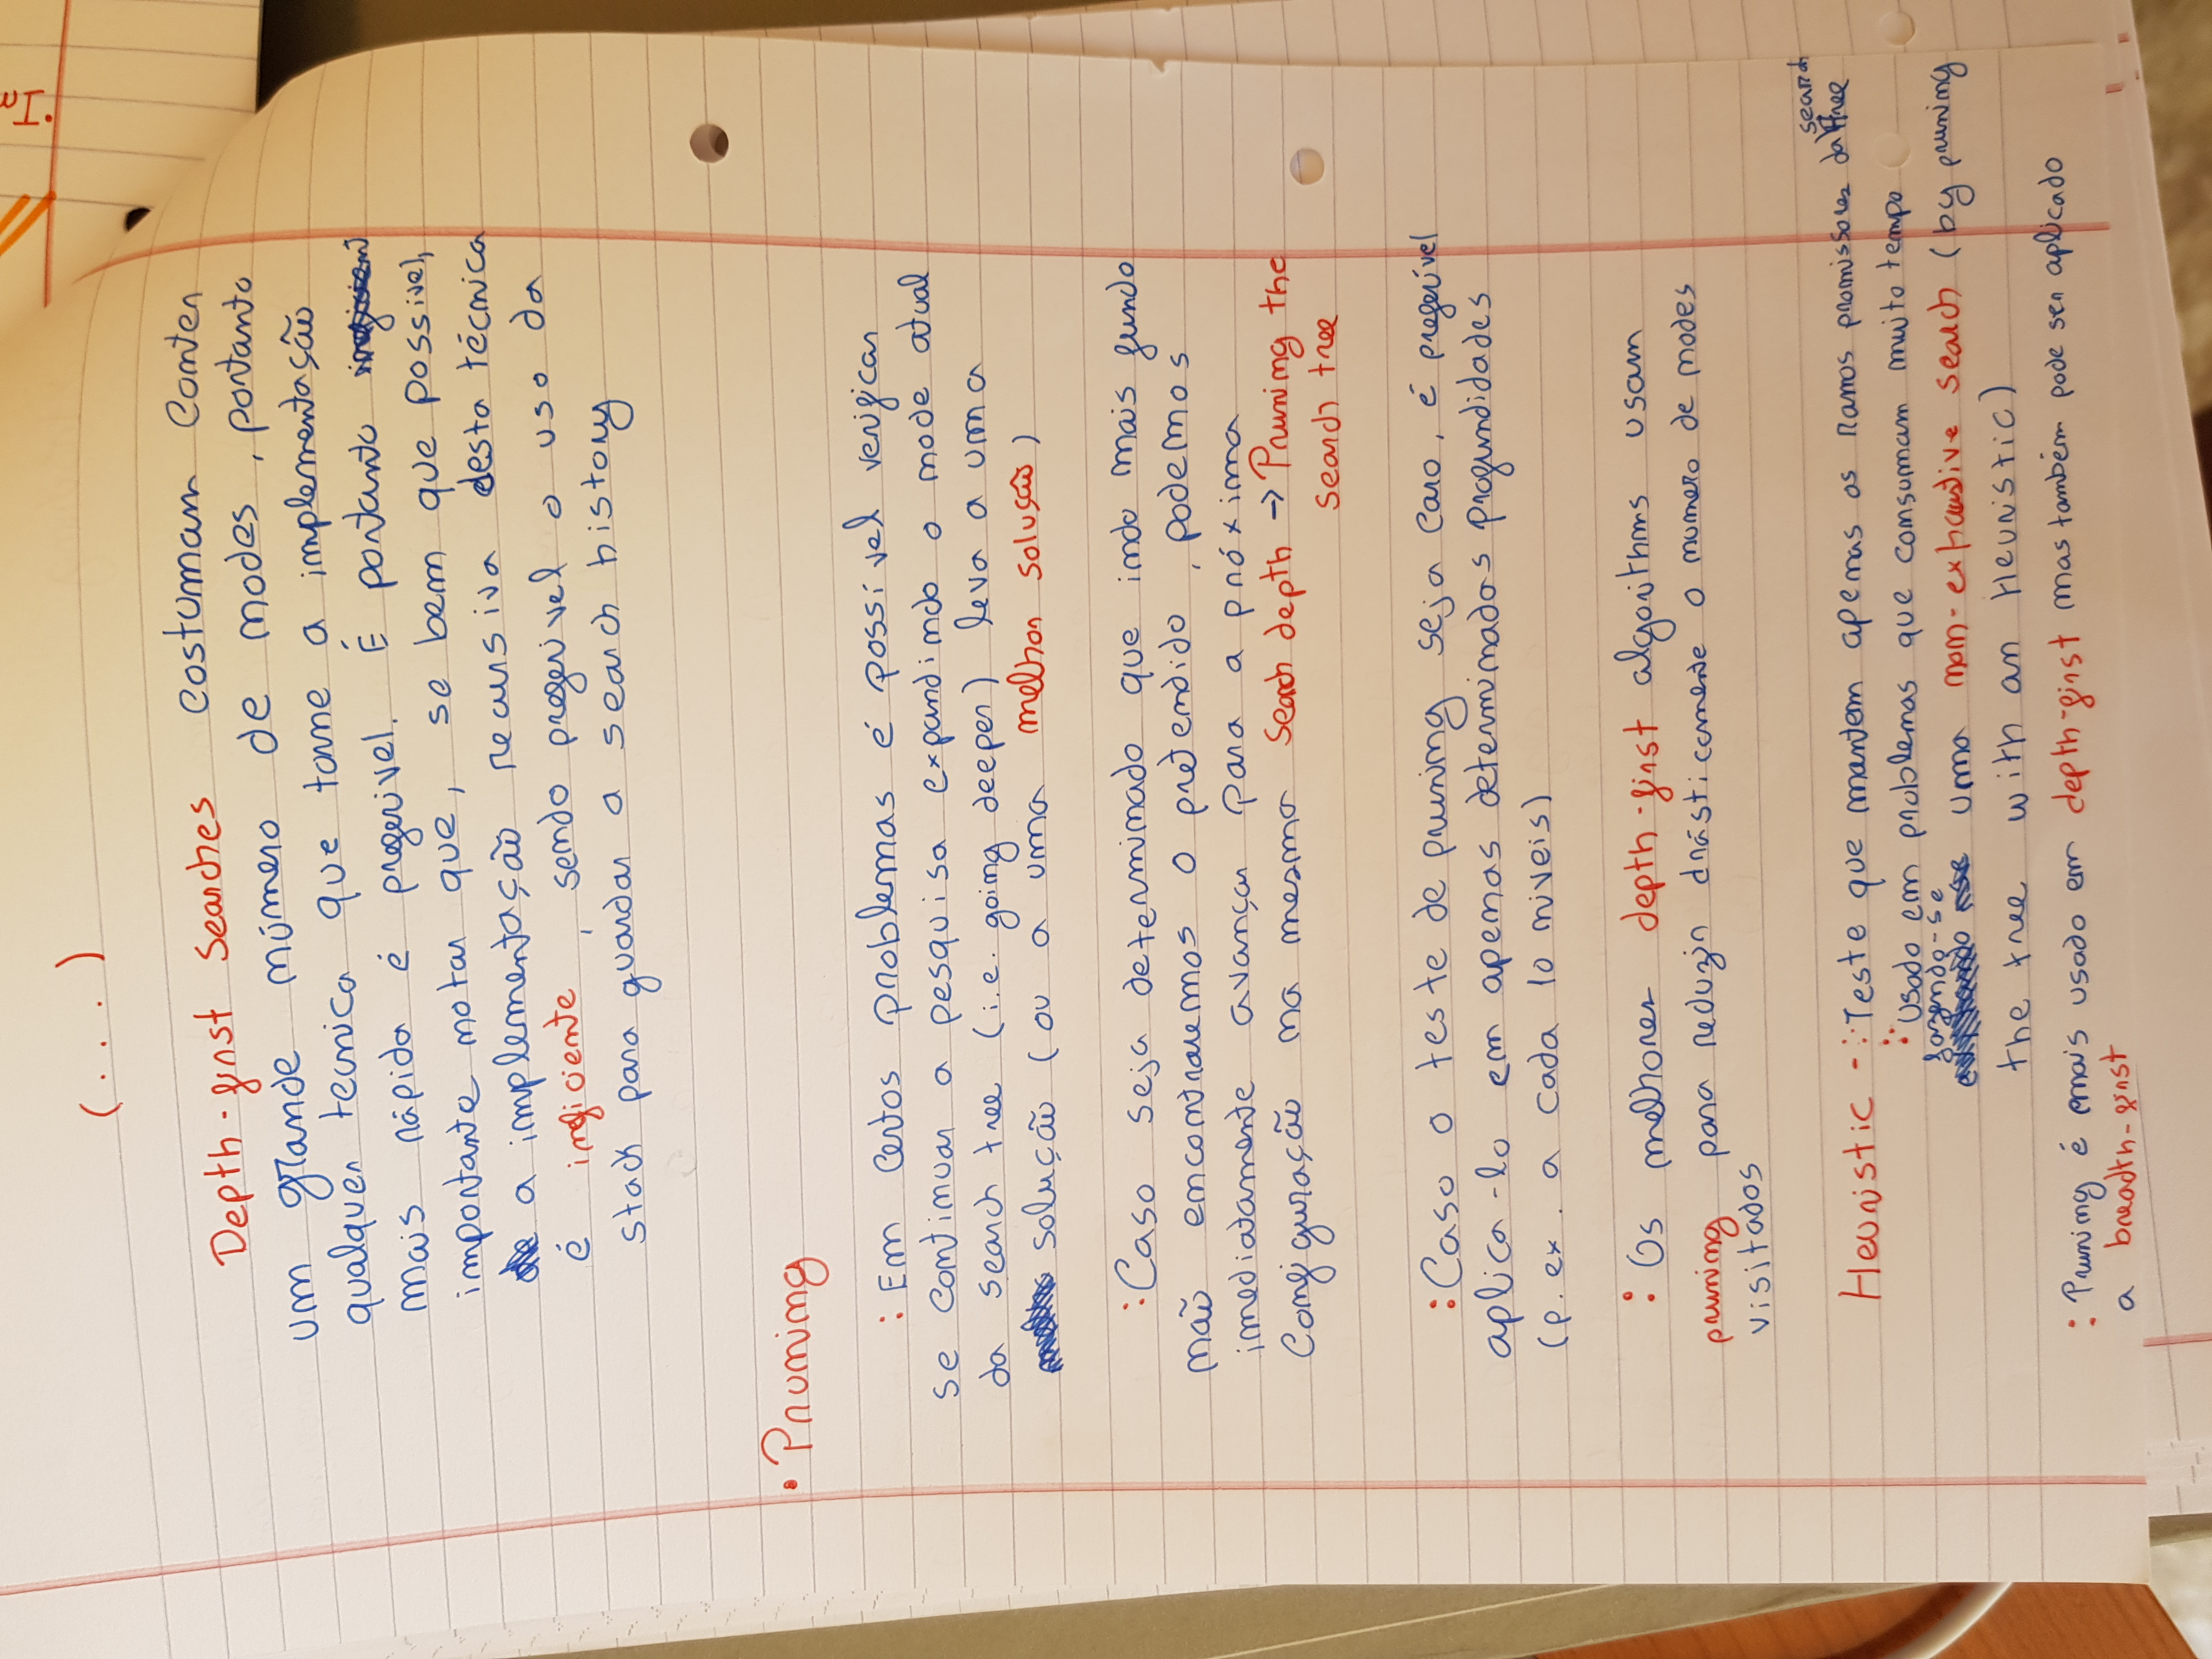 (...)
Depth-first searches costumam conter
um grande número de nodes, portanto
qualquer tecnica que torne a implementação
mais rápida é preferivel. É portanto
importante notar que, se bem que possivel,
a implementação recursiva desta técnica
é ineficiente, sendo preferivel o uso da
stack para guardar a search history
• Pruning
: Em certos problemas é possível verificar
se continuar a pesquisa expandindo o node atual
da search tree (i.e. going deeper) leva a uma
solução (ou a uma melhor solução)
: Caso seja determinado que indo mais fundo
não encontraremos o pretendido, podemos
imediatamente avançar para a próxima
configuração na mesma search depth → Pruning the
search tree
: Caso o teste de pruning seja caro, é preferível
aplica-lo em apenas determinadas profundidades
(p. ex. a cada 10 niveis)
: Os melhores depth-first algorithms usam
pruning para reduzir drásticamente o numero de nodes
visitados
search
Heuristic - : Teste que mantem apenas os ramos promissores da tree
: Usado em problemas que consumam muito tempo
fazendo-se
uma non-exhaustive search (by pruning
the tree with an Heuristic)
: Pruning é mais usado em depth-first mas também pode ser aplicado
a breadth-first